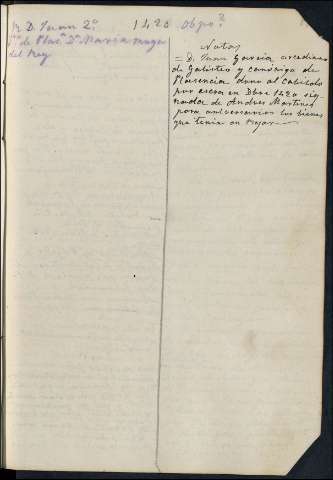 R. D. Juan 2º. 1420 Obpo?
Sra de Plasª Dª Maria muger
del Rey
Notas
= D. Juan Garcia arcediano
de Galisteo y canónigo de
Plasencia dono al cabildo
por escra en Dbre 1420 sig
nada de Andres Martinez
para aniversarios los bienes
que tenia en